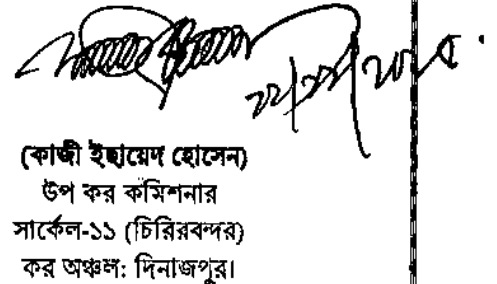 (কাজী ইছায়েদ হোসেন)
উপ কর কমিশনার
সার্কেল-১১ (চিরিরবন্দর)
কর অঞ্চল: দিনাজপুর।